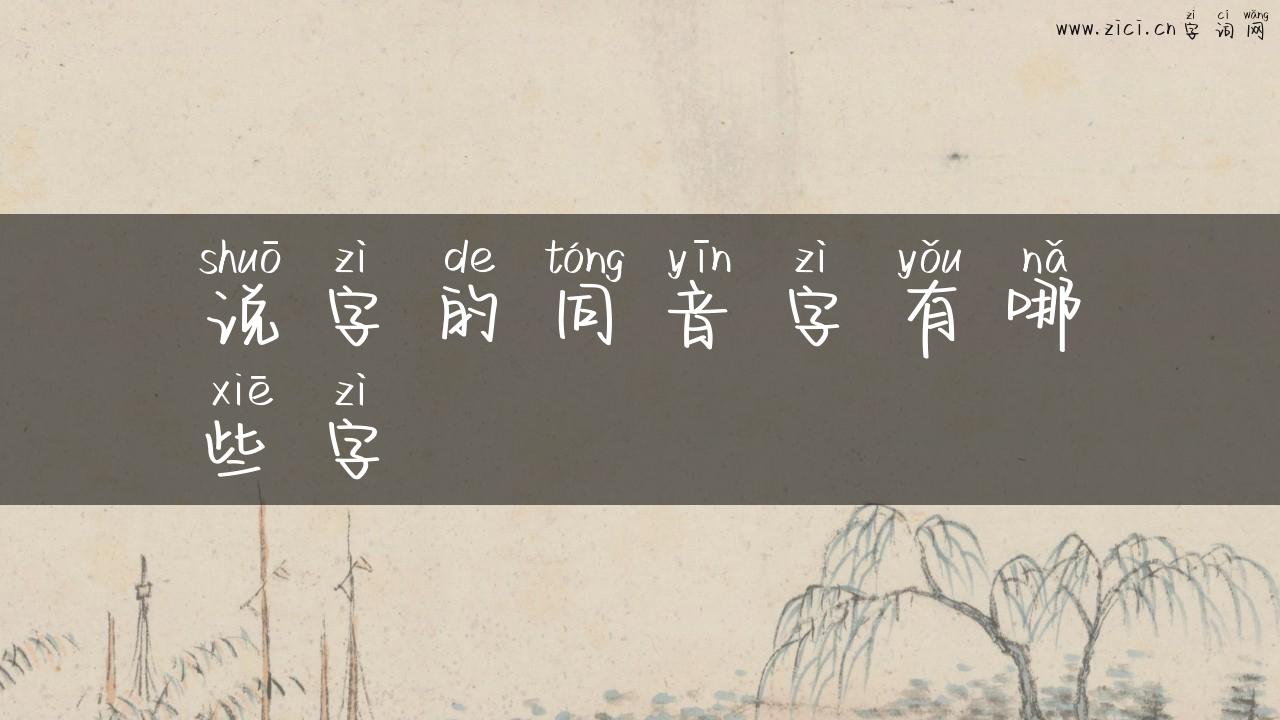 zì cí wǎng
www.zici.cn 字词网
shuō zì de tóng yīn zì yǒu nǎ
说字的同音字有哪
xiē zì
些字